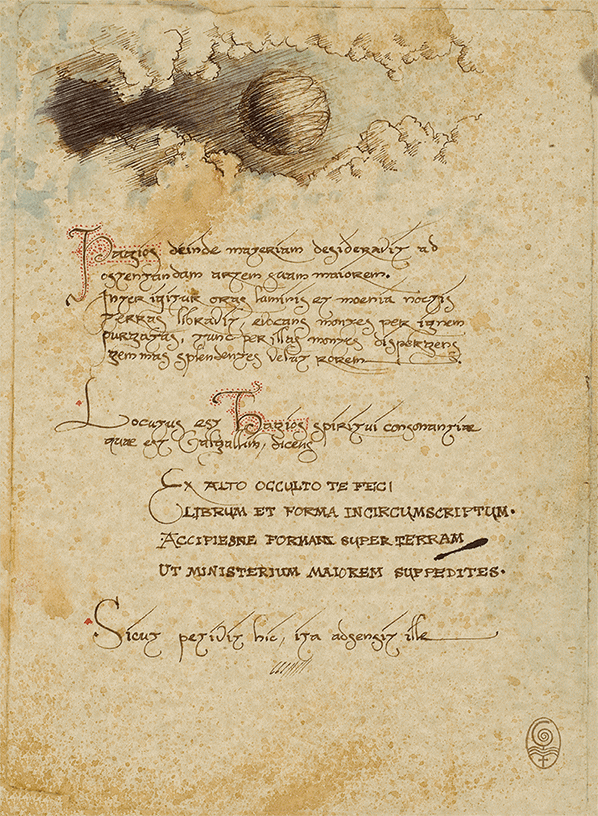 Hagios deinde materiam desideravit ad
ostentandam artem suam maiorem.
Inter igitur oras luminis et moenia noctis
terras libravit, evocans montes per ignem
purgatas, tunc per illas montes dispergens
gemmas splendentes velut rorem.
Locutus est Hagios spiritui consonantiae
quae est Targallim, dicens
EX ALTO OCCULTO TE FECI
LIBRUM ET FORMA INCIRCUMSCRIPTUM.
ACCIPIESNE FORMAM SUPER TERRAM
UT MINISTERIUM MAIOREM SUPPEDITES.
Sicut petivit hic, ita adsensit ille